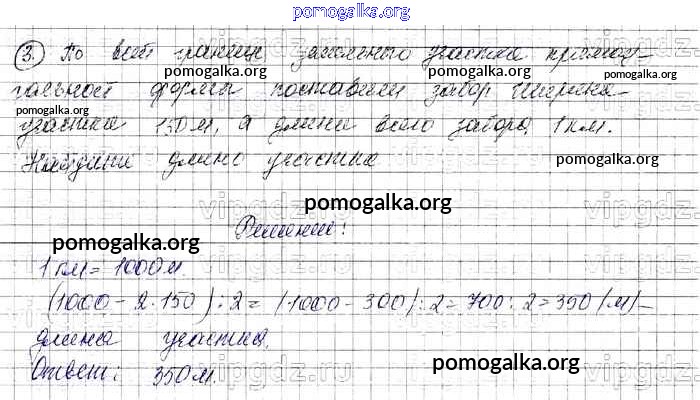 pomogalka.org
3. По всей границе земельного участка прямоу-
pomogalka.org pomogalka.org
гольной формы поставили забор. Ширина
pomogalka.org
участка 150 м, а длина всего забора 1 км.
Найдите длину участка
pomogalka.org
vipgdz.ru
pomogalka.org
Решение:
pomogalka.org
1 км = 1000 м.
(1000 - 2·150) : 2 = (1000 - 300) : 2 = 700 : 2 = 350 (м) -
длина участка.
pomogalka.org
Ответ: 350 м.
vipgdz.ru